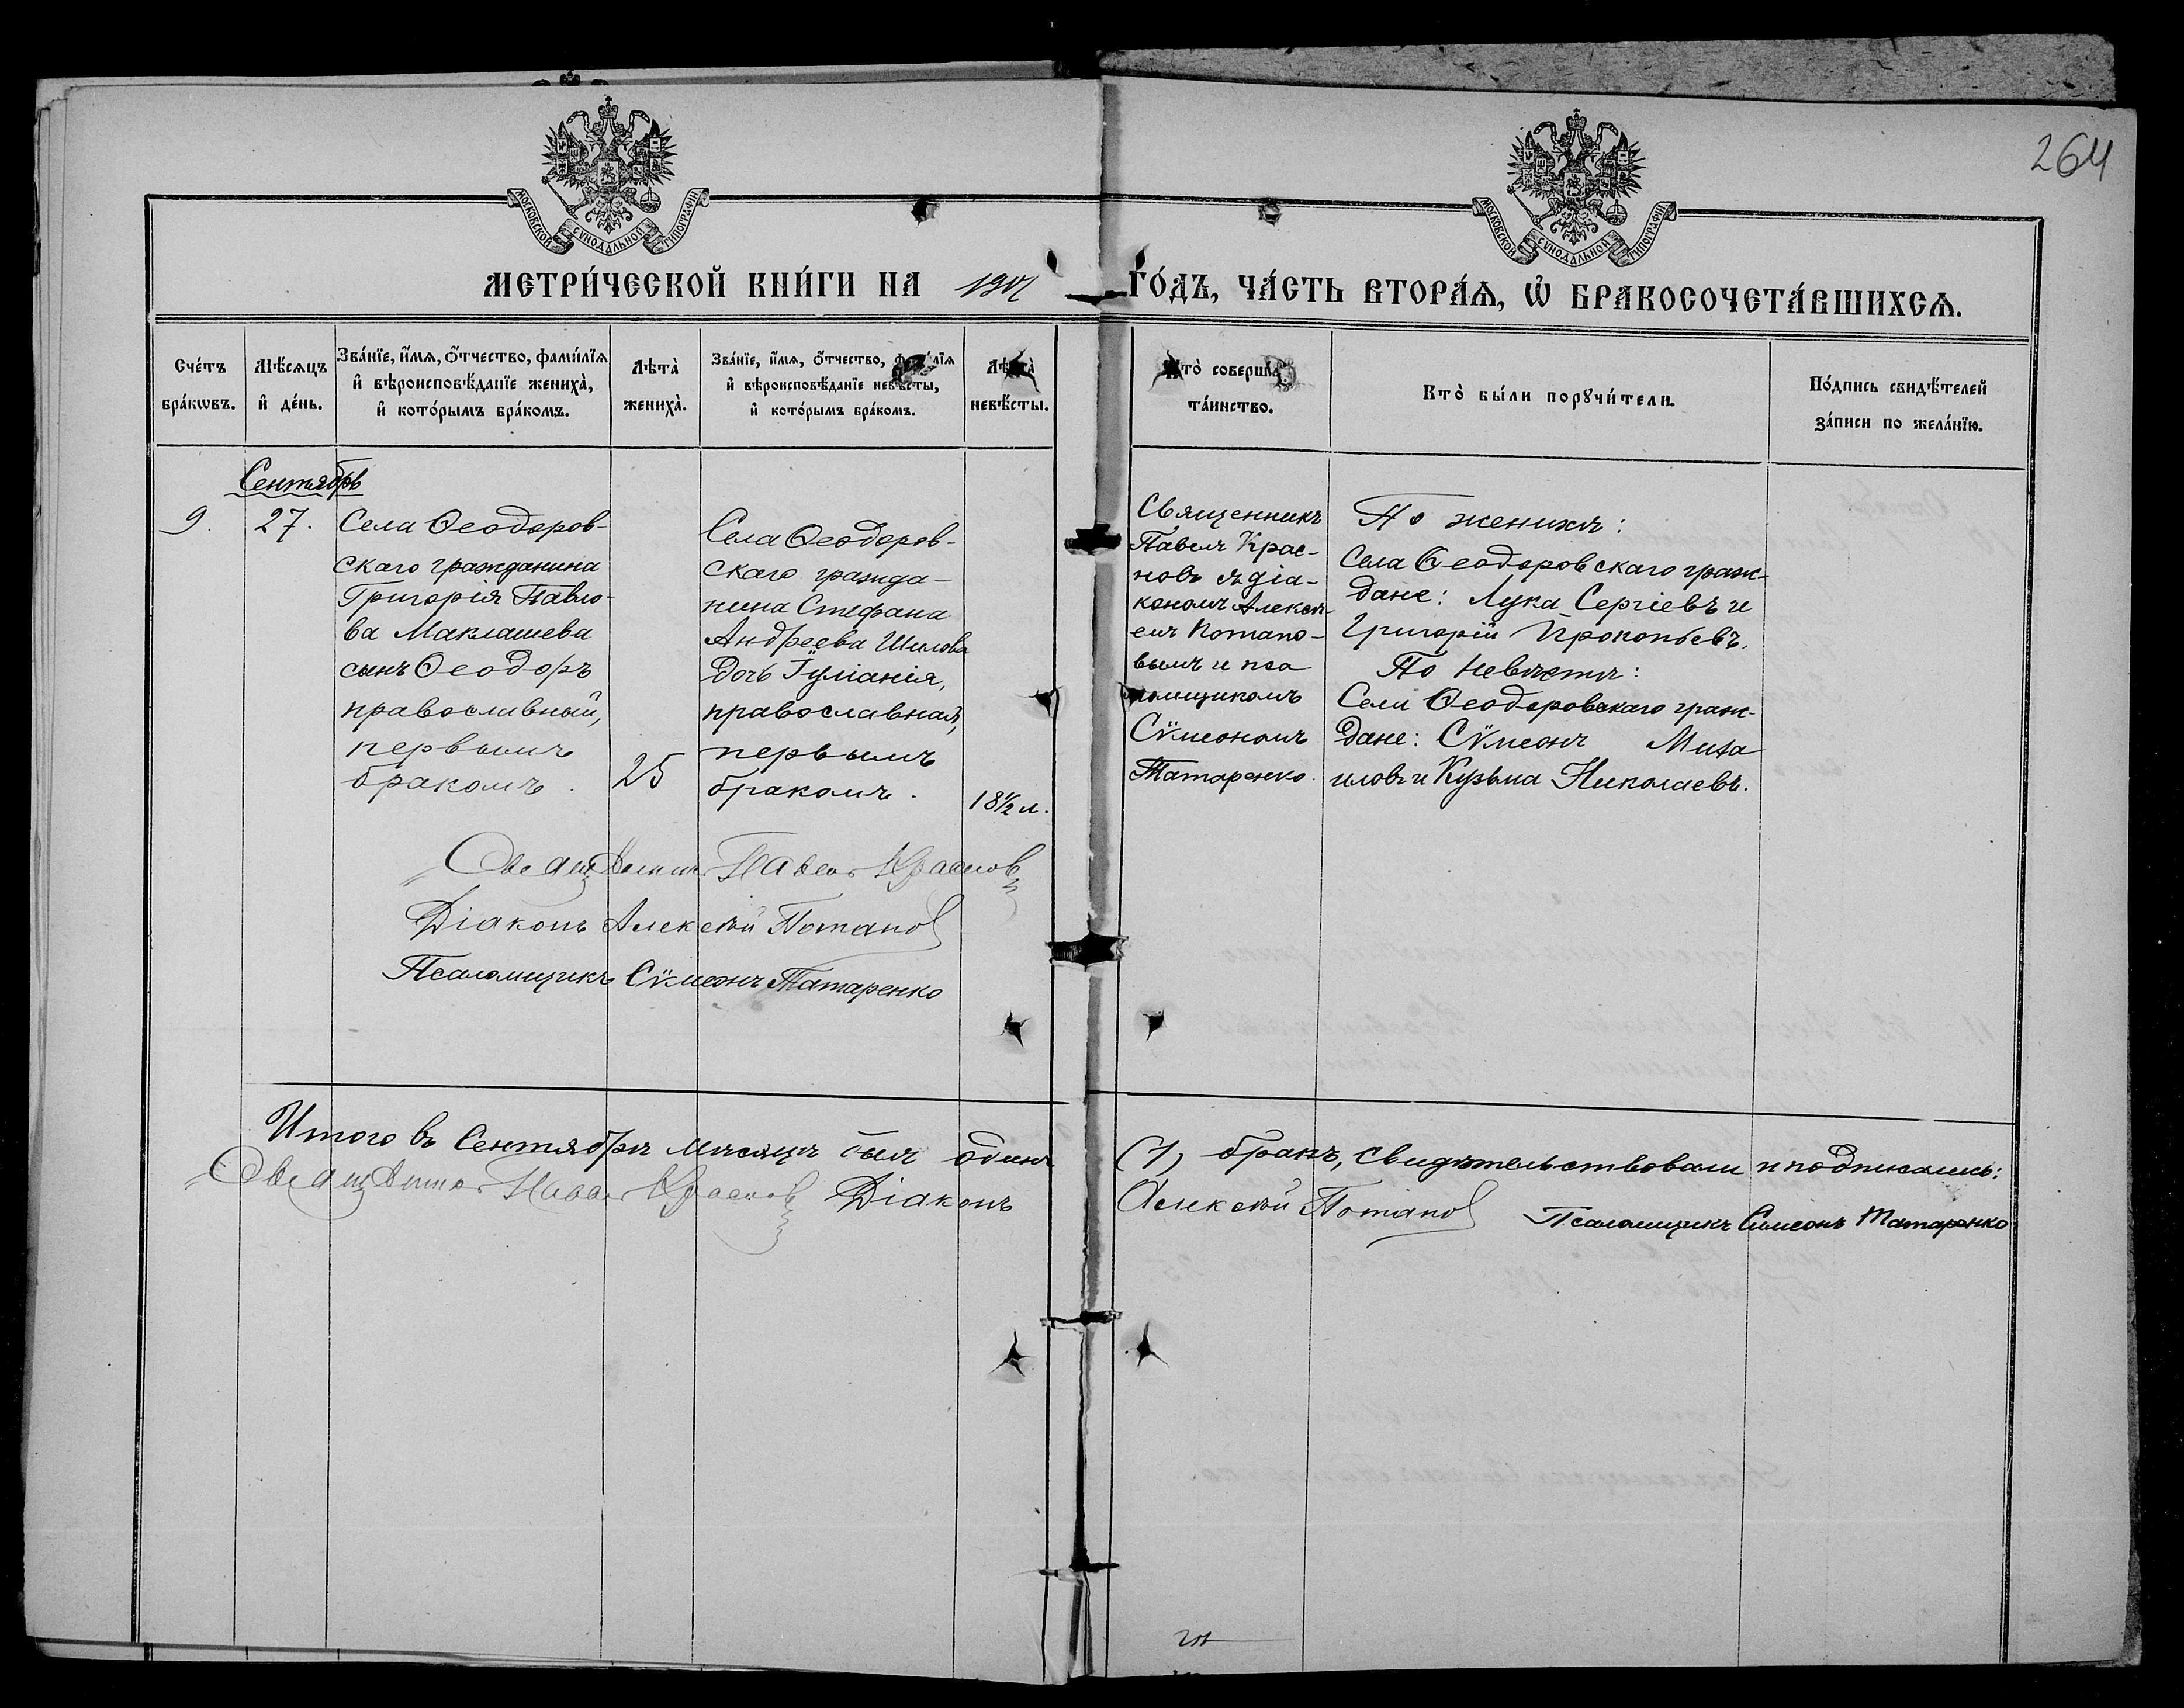 264
МОСКОВСКОЙ СѴНОДАЛЬНОЙ ТИПОГРАФІИ
МОСКОВСКОЙ СѴНОДАЛЬНОЙ ТИПОГРАФІИ
МЕТРИ́ЧЕСКОЙ КНИ́ГИ НА
ГО́ДЪ, ЧА́СТЬ ВТОРА́Ѧ, Ѡ҆ БРАКОСОЧЕТА́ВШИХСѦ.
Сче́тъ бра́кѡвъ.
Мѣ́сѧцъ и҆ де́нь.
Зва́нїе, и҆́мѧ, ѻ҆́тчество, фами́лїѧ
и҆ вѣроисповѣ́данїе жениха̀,
и҆ кото́рымъ бра́комъ.
Лѣта̀ жениха̀.
Зва́нїе, и҆́мѧ, ѻ҆́тчество, фами́лїѧ
и҆ вѣроисповѣ́данїе невѣ́сты,
и҆ кото́рымъ бра́комъ.
Лѣта̀ невѣ́сты.
Кто̀ соверша́лъ
та́инство.
Кто̀ бы́ли порꙋчи́тели.
По́дпись свидѣ́телей
за́писи по жела́нїю.
Сентябрь
9.
27.
Села Ѳеодоров-
скаго гражданина
Григорія Павло-
ва Маклашева
сынъ Ѳеодоръ
православный,
первымъ
бракомъ.
25
Села Ѳеодоров-
скаго гражда-
нина Стефана
Андреева Шилова
дочь Іуліанія,
православная,
первымъ
бракомъ.
18½ л.
Священникъ
Павелъ Крас-
новъ съ діа-
кономъ Алексѣ-
емъ Потапо-
вымъ и пса
ломщикомъ
Сѵмеономъ
Татаренко.
По женихѣ:
Села Ѳеодоровскаго граж-
дане: Лука Сергіевъ и
Григорій Прокопьевъ.
По невѣстѣ:
Села Ѳеодоровскаго граж-
дане: Сѵмеонъ Миха
иловъ и Кузьма Николаевъ.
Священникъ Павелъ Красновъ
Діаконъ Алексѣй Потаповъ
Псаломщикъ Сѵмеонъ Татаренко
Итого въ Сентябрѣ мѣсяцѣ былъ одинъ (1) бракъ, свидѣтельствовали и подписались:
Священникъ Павелъ Красновъ Діаконъ Алексѣй Потаповъ Псаломщикъ Симеонъ Татаренко